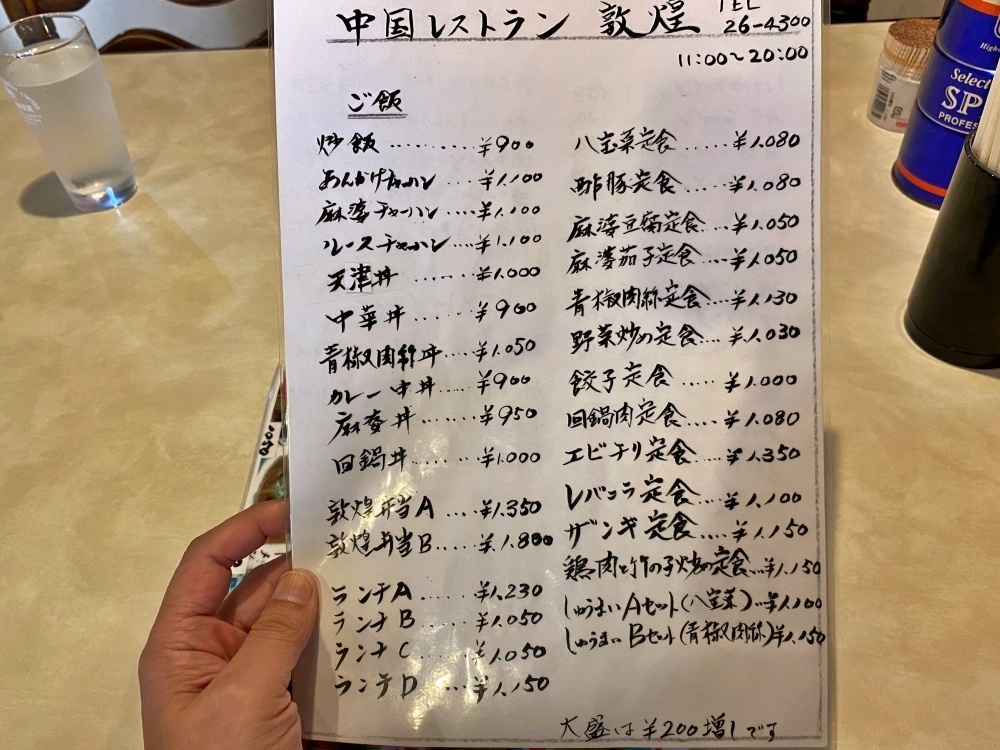 中国レストラン 敦煌
TEL
26-4300
11:00〜20:00
ご飯
炒飯………¥900
あんかけチャーハン…¥1,100
麻婆チャーハン…¥1,100
ルースチャーハン…¥1,100
天津丼…¥1,000
中華丼…¥900
青椒肉絲丼…¥1,050
カレー中丼…¥900
麻婆丼…¥950
回鍋丼…¥1,000
敦煌弁当A…¥1,350
敦煌弁当B…¥1,800
ランチA…¥1,230
ランチB…¥1,050
ランチC…¥1,050
ランチD…¥1,150
八宝菜定食…¥1,080
酢豚定食…¥1,080
麻婆豆腐定食…¥1,050
麻婆茄子定食…¥1,050
青椒肉絲定食…¥1,130
野菜炒め定食…¥1,030
餃子定食…¥1,000
回鍋肉定食…¥1,080
エビチリ定食…¥1,350
レバニラ定食…¥1,100
ザンギ定食…¥1,150
鶏肉と竹の子炒め定食…¥1,150
しゅうまいAセット(八宝菜)…¥1,100
しゅうまいBセット(青椒肉絲)¥1,150
大盛は¥200増しです
Select
SP
PROFES